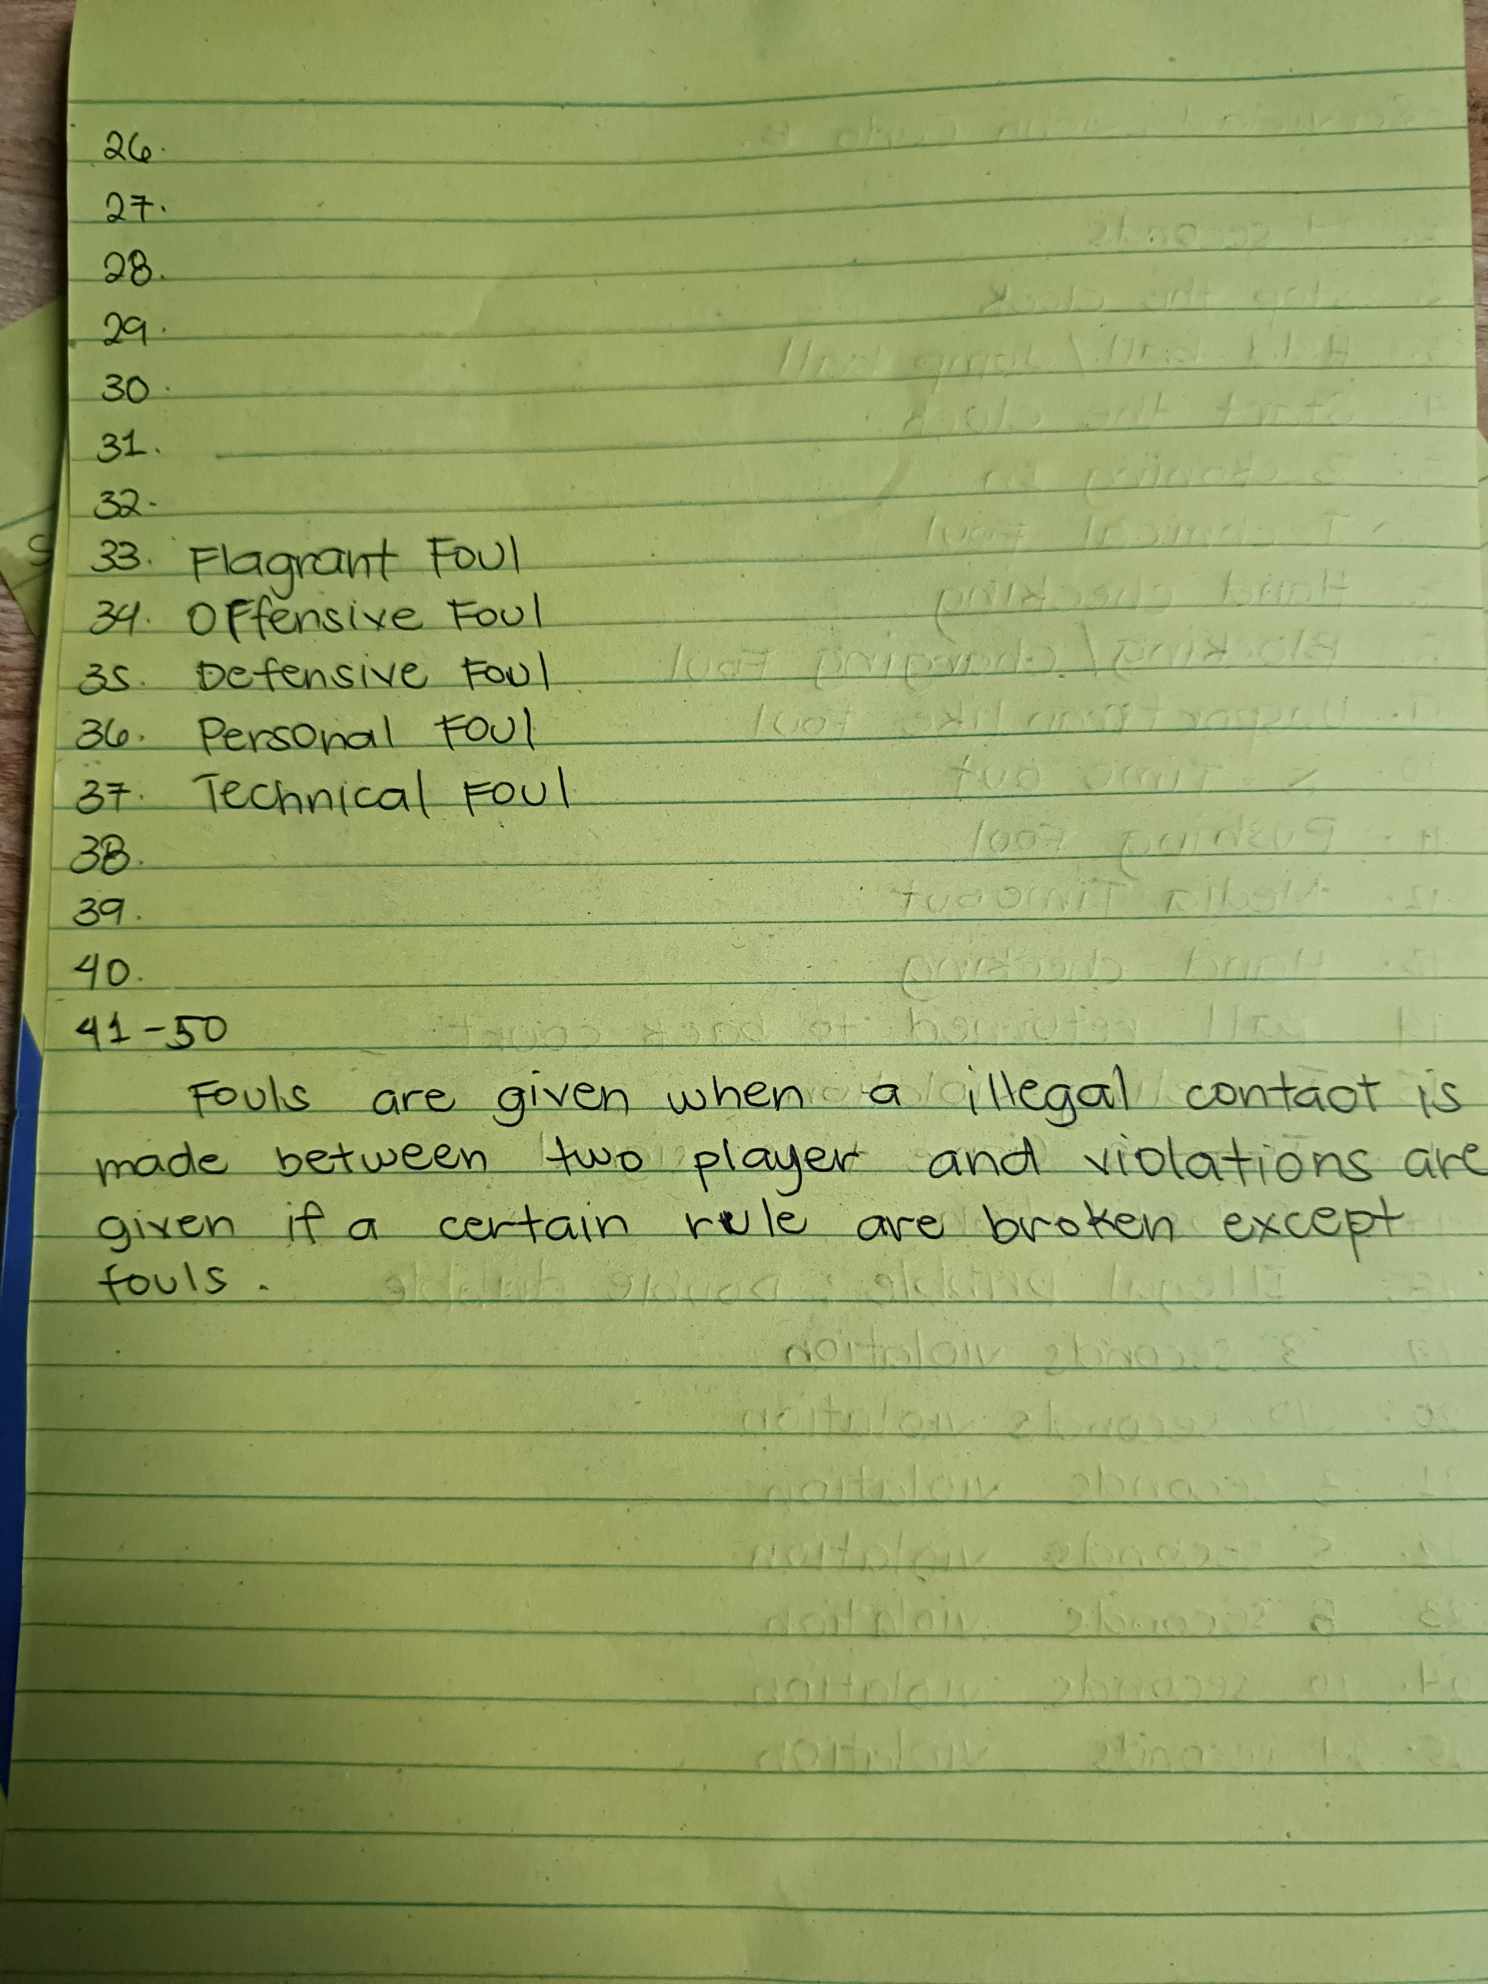 26.
27.
28.
29.
30.
31.
32.
33. Flagrant Foul
34. Offensive Foul
35. Defensive Foul
36. Personal Foul
37. Technical Foul
38.
39.
40.
41-50
Fouls are given when a illegal contact is
made between two player and violations are
given if a certain rule are broken except
fouls.